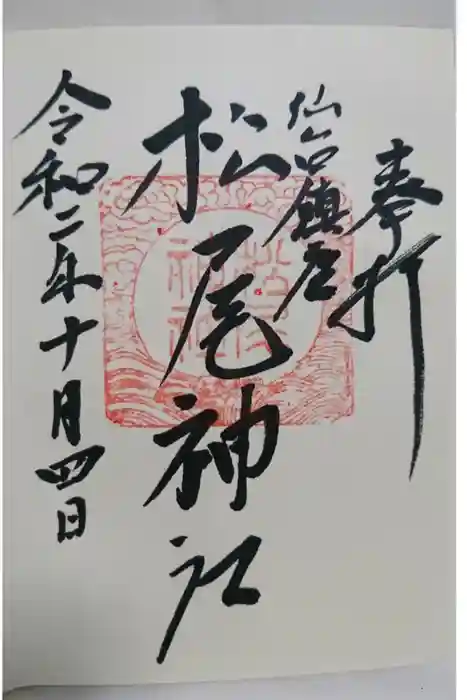 奉拝
仙台鎮座
松尾神社
令和二年十月四日